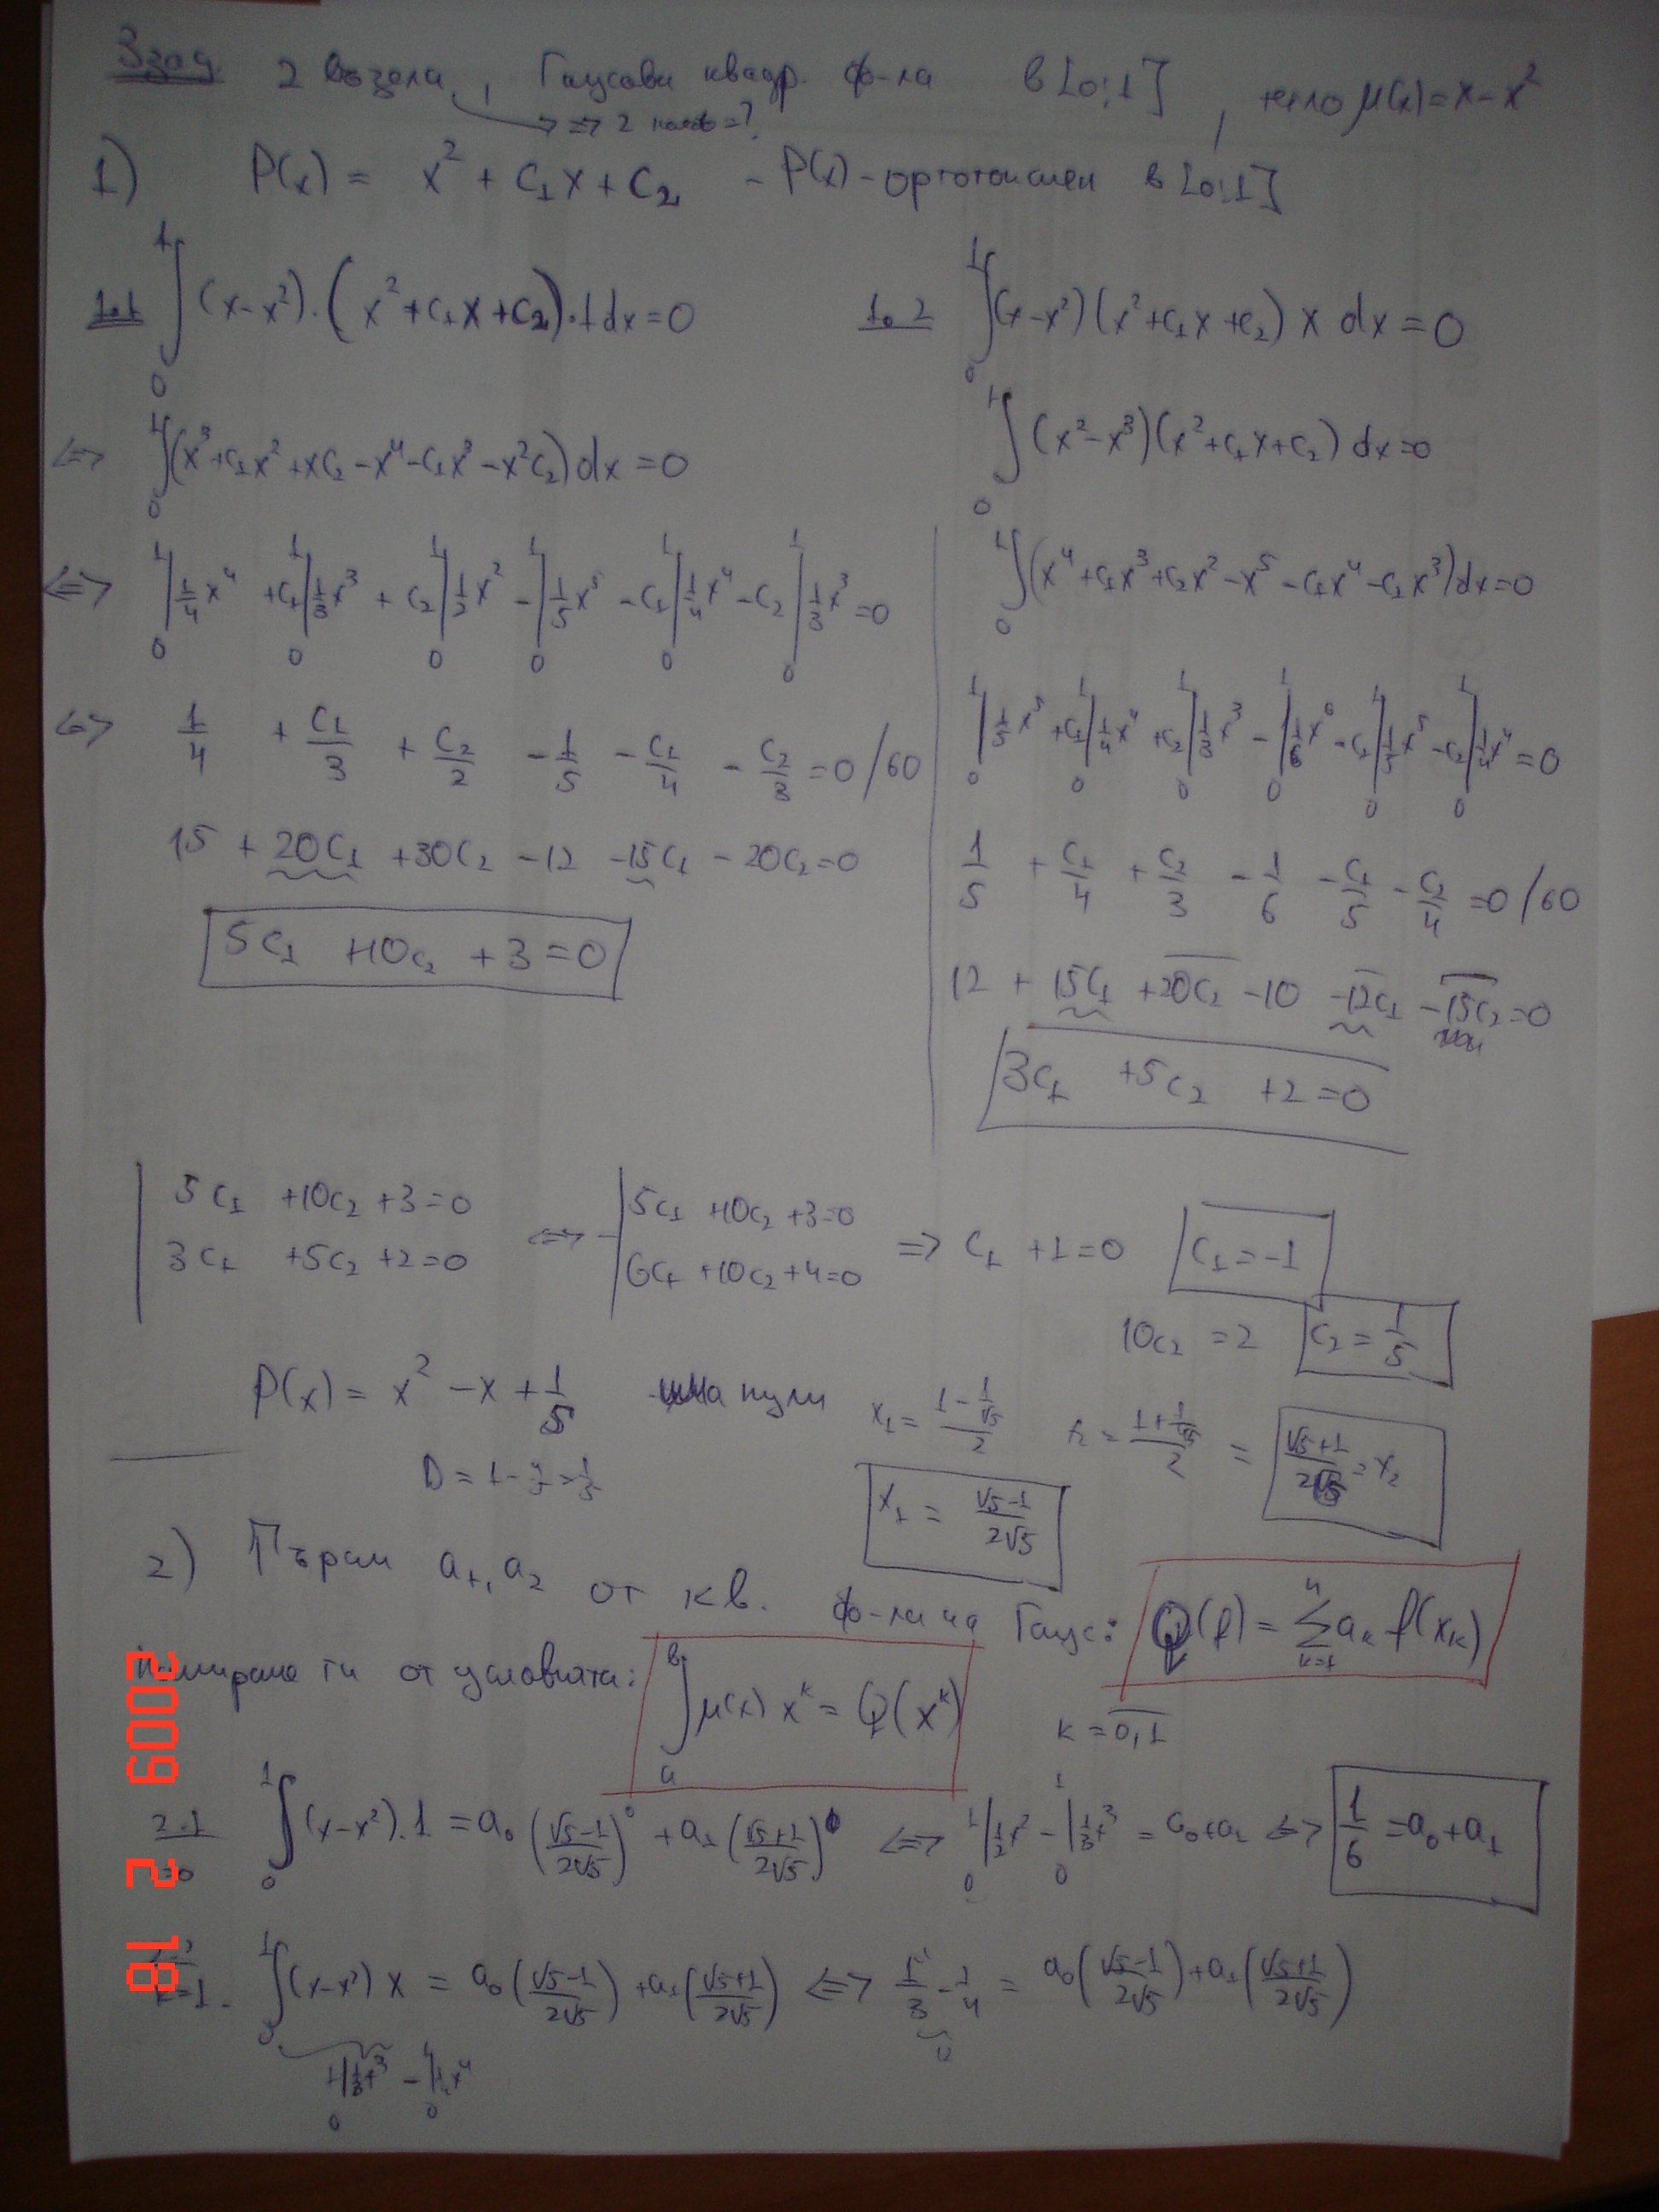 3зад. 2 възела, Гаусови квадр. ф-ла в [0;1], тегло μ(x)=x-x²
=> 2 =?
1) P(x) = x² + C₁x + C₂ - P(x) - ортогонален в [0;1]
1.1 ∫₀¹ (x-x²).(x²+C₁x+C₂).1dx=0
<=> ∫₀¹ (x³+C₁x²+xC₂-x⁴-C₁x³-x²C₂)dx=0
<=> |₀¹ 1/4 x⁴ + C₁|₀¹ 1/3 x³ + C₂|₀¹ 1/2 x² - |₀¹ 1/5 x⁵ - C₁|₀¹ 1/4 x⁴ - C₂|₀¹ 1/3 x³ = 0
<=> 1/4 + C₁/3 + C₂/2 - 1/5 - C₁/4 - C₂/3 = 0 /60
15 + 20C₁ + 30C₂ - 12 - 15C₁ - 20C₂ = 0
5C₁ + 10C₂ + 3 = 0
1.2 ∫₀¹ (x-x²)(x²+C₁x+C₂) x dx = 0
∫₀¹ (x²-x³)(x²+C₁x+C₂) dx=0
∫₀¹ (x⁴+C₁x³+C₂x²-x⁵-C₁x⁴-C₂x³)dx=0
|₀¹ 1/5 x⁵ + C₁|₀¹ 1/4 x⁴ + C₂|₀¹ 1/3 x³ - |₀¹ 1/6 x⁶ - C₁|₀¹ 1/5 x⁵ - C₂|₀¹ 1/4 x⁴ = 0
1/5 + C₁/4 + C₂/3 - 1/6 - C₁/5 - C₂/4 = 0 /60
12 + 15C₁ + 20C₂ - 10 - 12C₁ - 15C₂ = 0
3C₁ + 5C₂ + 2 = 0
5C₁ + 10C₂ + 3 = 0 <=> 5C₁ + 10C₂ + 3 = 0
3C₁ + 5C₂ + 2 = 0 6C₁ + 10C₂ + 4 = 0 => C₁ + 1 = 0 C₁ = -1
10C₂ = 2 C₂ = 1/5
P(x) = x² - x + 1/5 нули x₁ = (1 - 1/√5)/2 x₂ = (1 + 1/√5)/2 = (√5+1)/(2√5) = x₂
D = 1 - 4/5 = 1/5 x₁ = (√5-1)/(2√5)
2) a₁, a₂ от кв. ф-ла на Гаус: Q(f) = Σₖ₌₁ⁿ aₖ f(xₖ)
Намираме ги от условията: ∫ₐᵇ μ(x) xᵏ = Q(xᵏ) k = 0,1
2.1 k=0 ∫₀¹ (x-x²).1 = a₀((√5-1)/(2√5))⁰ + a₁((√5+1)/(2√5))⁰ <=> |₀¹ 1/2 x² - |₀¹ 1/3 x³ = a₀+a₁ <=> 1/6 = a₀+a₁
k=1 ∫₀¹ (x-x²) x = a₀((√5-1)/(2√5)) + a₁((√5+1)/(2√5)) <=> 1/3 - 1/4 = a₀((√5-1)/(2√5)) + a₁((√5+1)/(2√5))
|₀¹ 1/3 x³ - |₀¹ 1/4 x⁴
2009 2 18